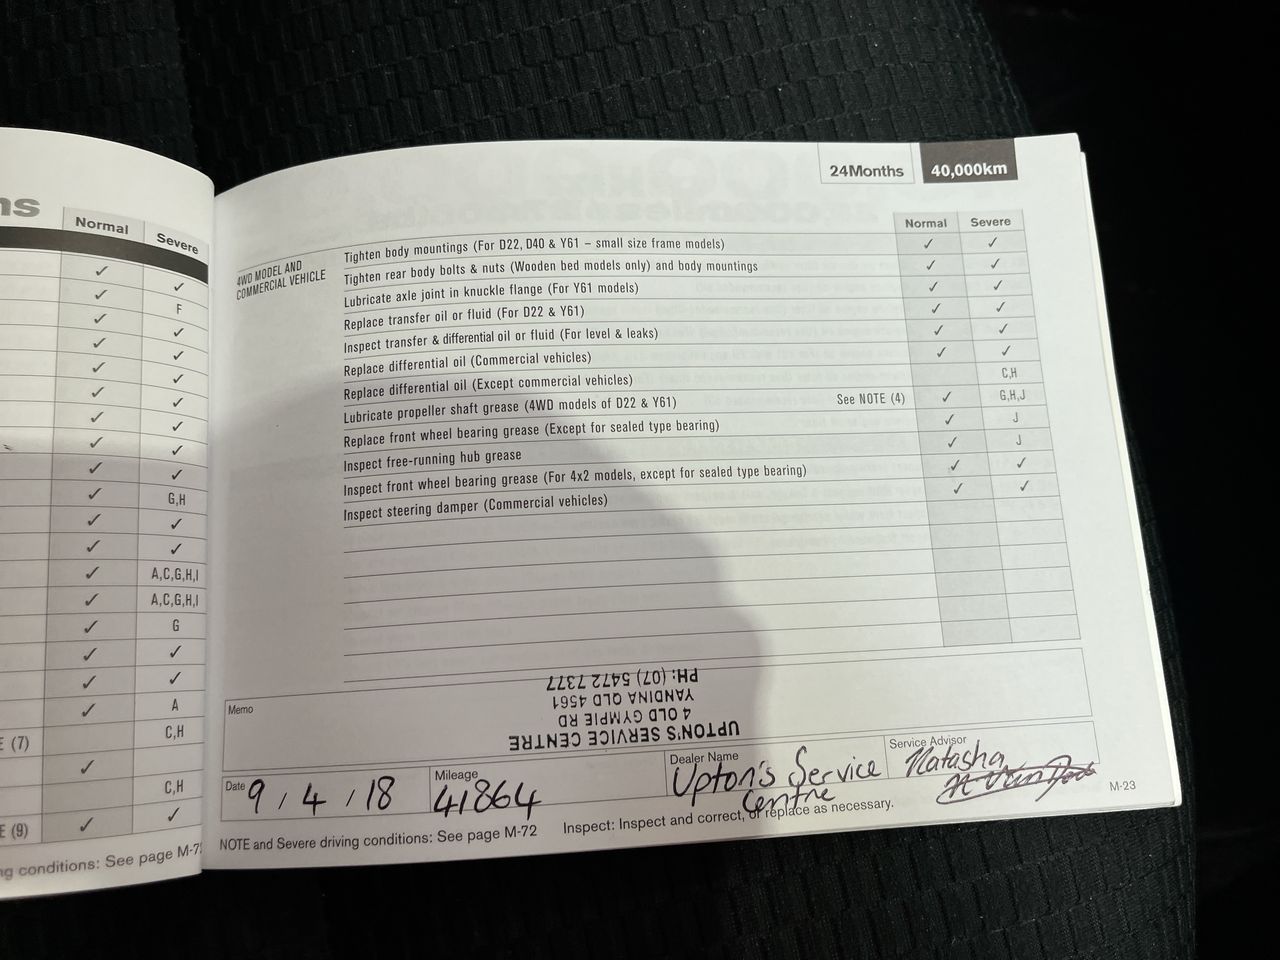 ns
Normal
Severe
✓ ✓
✓ F
✓ ✓
✓ ✓
✓ ✓
✓ ✓
✓ ✓
✓ ✓
✓ ✓
✓ G,H
✓ ✓
✓ ✓
✓ A,C,G,H,I
✓ A,C,G,H,I
✓ G
✓ ✓
✓ ✓
✓ A
E (7) C,H
✓
C,H
E (9) ✓ ✓
ng conditions: See page M-7
24Months 40,000km
Normal Severe
4WD MODEL AND
COMMERCIAL VEHICLE
Tighten body mountings (For D22, D40 & Y61 – small size frame models) ✓ ✓
Tighten rear body bolts & nuts (Wooden bed models only) and body mountings ✓ ✓
Lubricate axle joint in knuckle flange (For Y61 models) ✓ ✓
Replace transfer oil or fluid (For D22 & Y61) ✓ ✓
Inspect transfer & differential oil or fluid (For level & leaks) ✓ ✓
Replace differential oil (Commercial vehicles) ✓ ✓
Replace differential oil (Except commercial vehicles) C,H
Lubricate propeller shaft grease (4WD models of D22 & Y61) See NOTE (4) ✓ G,H,J
Replace front wheel bearing grease (Except for sealed type bearing) ✓ J
Inspect free-running hub grease ✓ J
Inspect front wheel bearing grease (For 4x2 models, except for sealed type bearing) ✓ ✓
Inspect steering damper (Commercial vehicles) ✓ ✓
Memo
UPTON'S SERVICE CENTRE
4 OLD GYMPIE RD
YANDINA QLD 4561
PH: (07) 5472 7377
Date 9 / 4 / 18
Mileage 41864
Dealer Name Upton's Service Centre
Service Advisor Natasha
NOTE and Severe driving conditions: See page M-72
Inspect: Inspect and correct, or replace as necessary.
M-23